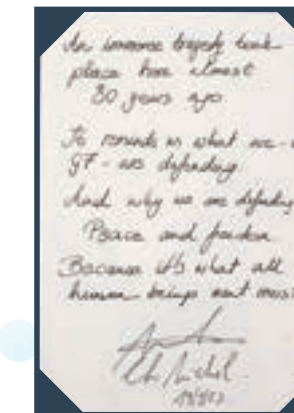 An immense tragedy took
place here almost
80 years ago.
It reminds us what we -
G7 - are defending.
And why we are defending
Peace and freedom
Because it's what all
human beings want most
Ch. Michel